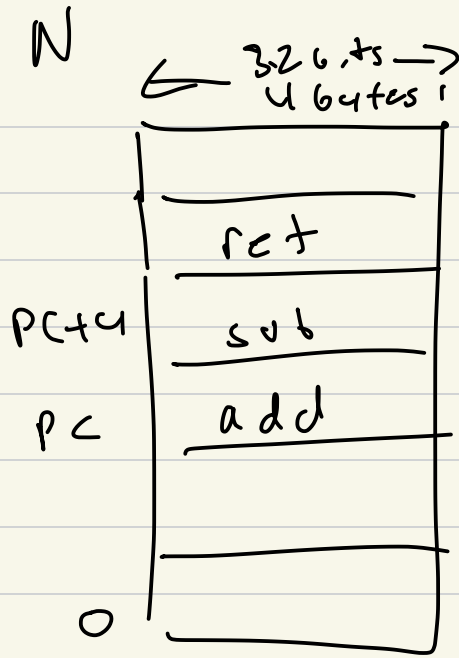 N
32 bits
4 bytes
ret
PC+4 sub
PC add
0